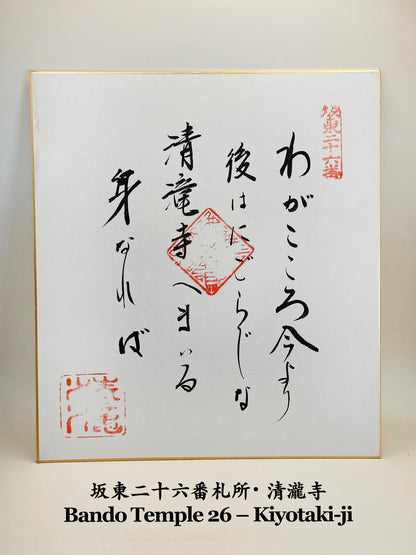 坂東二十六番
わがこころ今より
後はにごらじな
清滝寺へまいる
身なれば
坂東二十六番札所・清瀧寺
Bando Temple 26 – Kiyotaki-ji